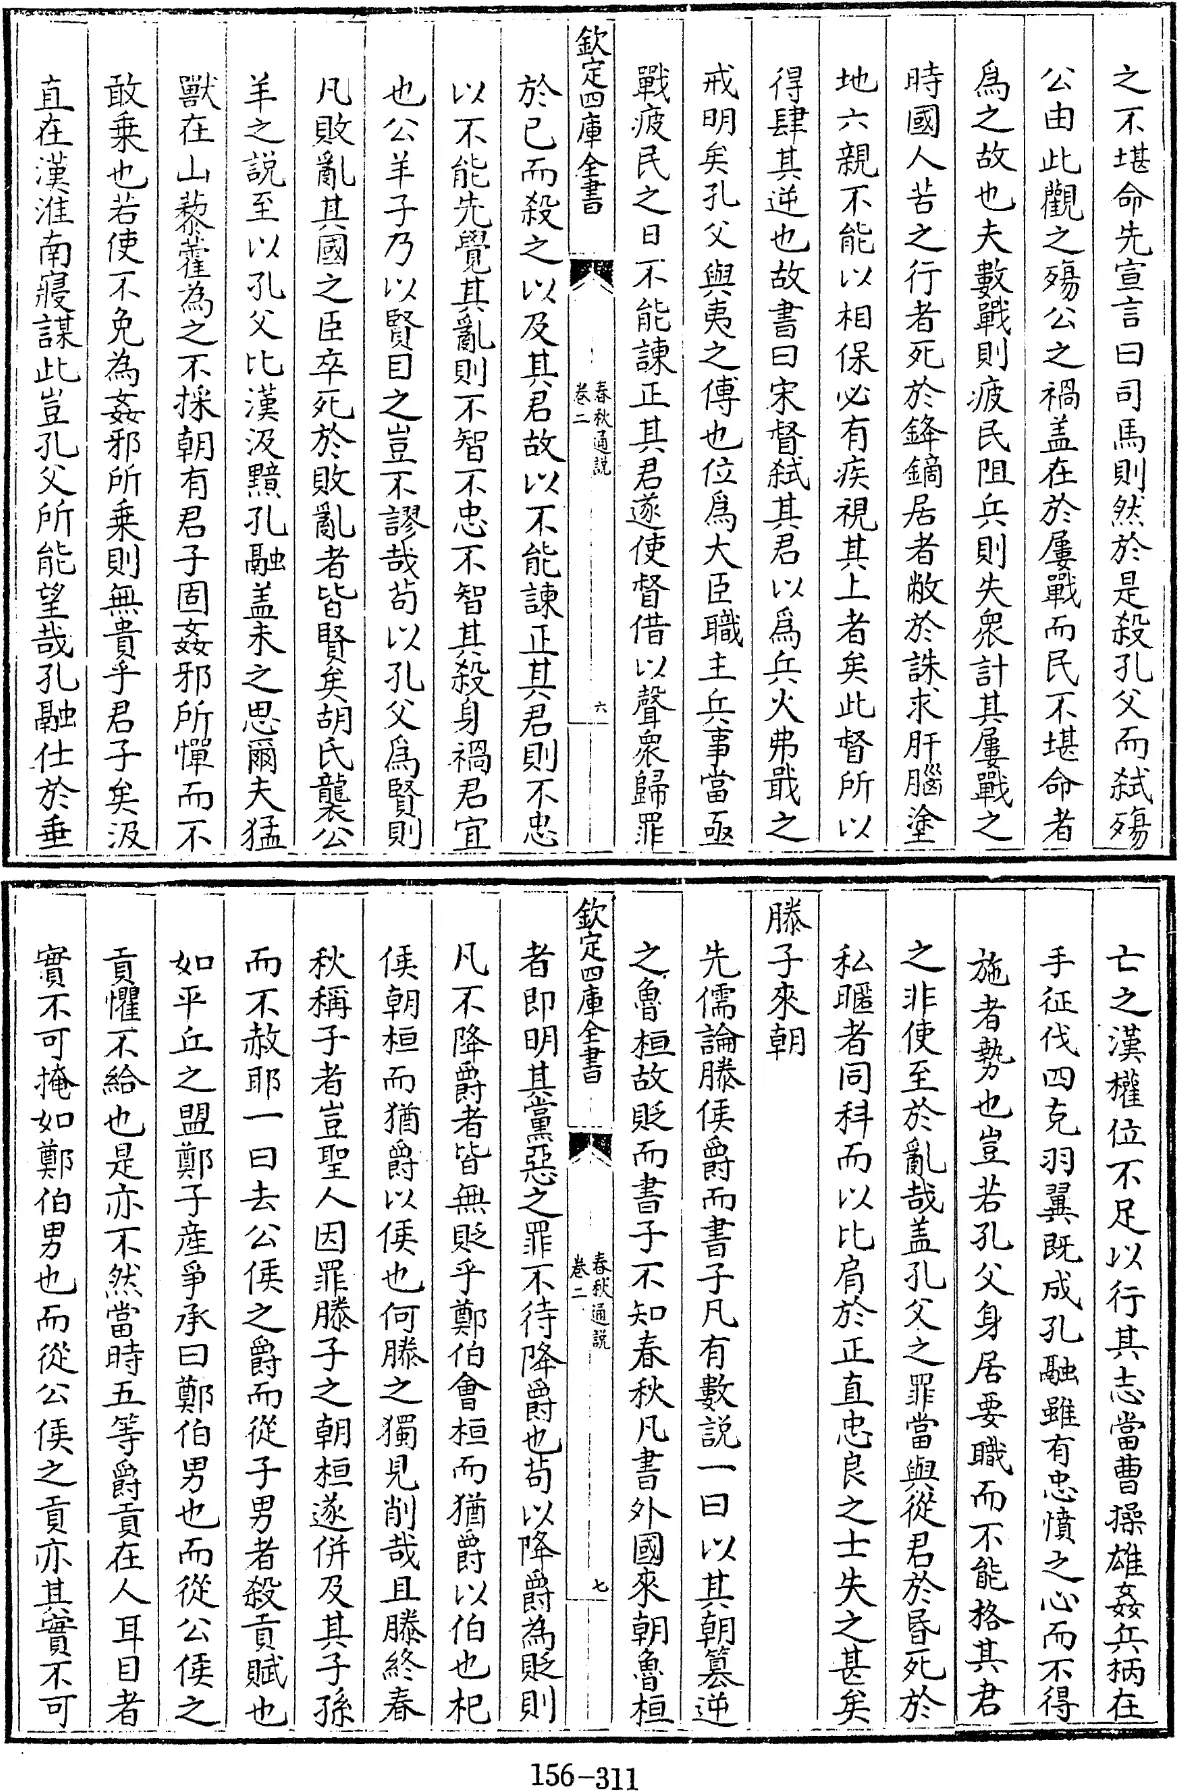 之不堪命先宣言曰司馬則然於是殺孔父而弑殤
公由此觀之殤公之禍盖在於屢戰而民不堪命者
爲之故也夫數戰則疲民阻兵則失衆計其屢戰之
時國人苦之行者死於鋒鏑居者敝於誅求肝腦塗
地六親不能以相保必有疾視其上者矣此督所以
得肆其逆也故書曰宋督弑其君以爲兵火弗戢之
戒明矣孔父與夷之傅也位爲大臣職主兵事當亟
戰疲民之日不能諫正其君遂使督借以聲衆歸罪
欽定四庫全書
春秋通說
卷二
六
於己而殺之以及其君故以不能諫正其君則不忠
以不能先覺其亂則不智不忠不智其殺身禍君宜
也公羊子乃以賢目之豈不謬哉苟以孔父爲賢則
凡敗亂其國之臣卒死於敗亂者皆賢矣胡氏襲公
羊之說至以孔父比漢汲黯孔融盖未之思爾夫猛
獸在山藜藿為之不採朝有君子固姦邪所憚而不
敢乗也若使不免為姦邪所乗則無貴乎君子矣汲
直在漢淮南寢謀此豈孔父所能望哉孔融仕於垂
亡之漢權位不足以行其志當曹操雄姦兵柄在
手征伐四克羽翼既成孔融雖有忠憤之心而不得
施者勢也豈若孔父身居要職而不能格其君
之非使至於亂哉盖孔父之罪當與從君於昏死於
私暱者同科而以比肩於正直忠良之士失之甚矣
滕子來朝
先儒論滕侯爵而書子凡有數說一曰以其朝簒逆
之魯桓故貶而書子不知春秋凡書外國來朝魯桓
欽定四庫全書
春秋通說
卷二
七
者即明其黨惡之罪不待降爵也苟以降爵為貶則
凡不降爵者皆無貶乎鄭伯會桓而猶爵以伯也杞
侯朝桓而猶爵以侯也何滕之獨見削哉且滕終春
秋稱子者豈聖人因罪滕子之朝桓遂併及其子孫
而不赦耶一曰去公侯之爵而從子男者殺貢賦也
如平丘之盟鄭子產爭承曰鄭伯男也而從公侯之
貢懼不給也是亦不然當時五等爵貢在人耳目者
實不可掩如鄭伯男也而從公侯之貢亦其實不可
156-311